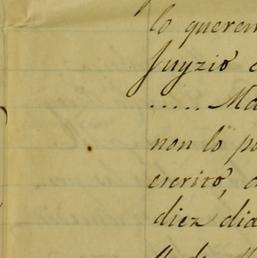 lo querem
Juyzio
..... Ma
non lo po
escrito,
diez dia